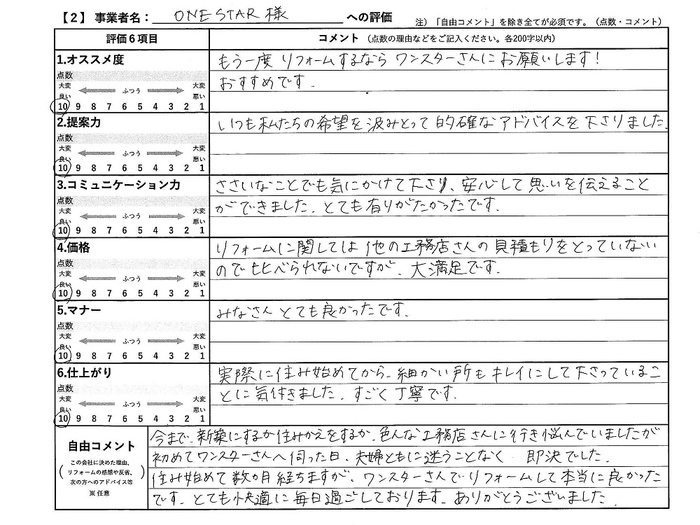 【2】事業者名： ONE STAR 様 への評価
注）「自由コメント」を除き全てが必須です。（点数・コメント）
評価６項目
コメント（点数の理由などをご記入ください。各200字以内）
1.オススメ度
点数
大変 大変
良い ふつう 悪い
10 9 8 7 6 5 4 3 2 1
もう一度 リフォームするなら ワンスターさんにお願いします！
おすすめです．
2.提案力
点数
大変 大変
良い ふつう 悪い
10 9 8 7 6 5 4 3 2 1
いつも私たちの希望を汲みとって的確なアドバイスを下さりました．
3.コミュニケーション力
点数
大変 大変
良い ふつう 悪い
10 9 8 7 6 5 4 3 2 1
ささいなことでも気にかけて下さり、安心して思いを伝えること
ができました．とても有りがたかったです．
4.価格
点数
大変 大変
良い ふつう 悪い
10 9 8 7 6 5 4 3 2 1
リフォームに関しては他の工務店さんの見積もりをとっていない
ので比べられないですが、大満足です．
5.マナー
点数
大変 大変
良い ふつう 悪い
10 9 8 7 6 5 4 3 2 1
みなさん とても良かったです．
6.仕上がり
点数
大変 大変
良い ふつう 悪い
10 9 8 7 6 5 4 3 2 1
実際に住み始めてから、細かい所もキレイにして下さっているこ
とに気付きました．すごく丁寧です．
自由コメント
（この会社に決めた理由、
リフォームの感想や反省、
次の方へのアドバイス等）
※任意
今まで、新築にするか住みかえをするか、色んな工務店さんに行き悩んでいましたが
初めてワンスターさんへ伺った日、夫婦ともに迷うことなく 即決でした．
住み始めて数ヶ月経ちますが、ワンスターさんでリフォームして本当に良かった
です．とても快適に毎日過ごしております．ありがとうございました．